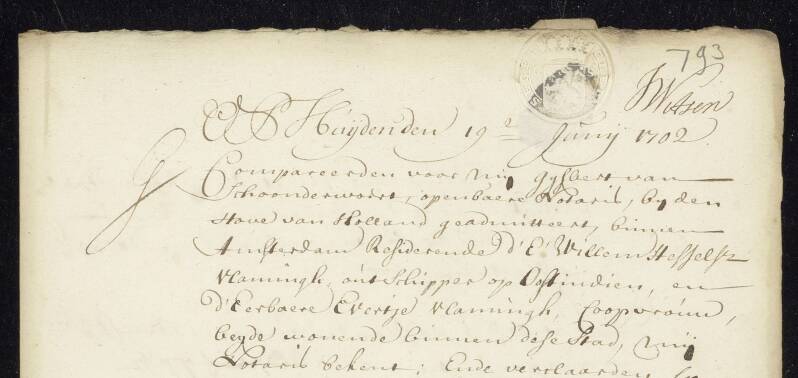 793
JWitsen
Op Huijden den 19e Junij 1702
Compareerden voor mij Gijsbert van
Schoonderwoert, openbaere Notaris, bij den
Hove van Holland geadmitteert, binnen
Amsterdam Residerende d'E: Willem Hesselsz
Vlamingh, out Schipper op Oostindien, en
d'Eerbaere Evertje Vlamingh, Coopvrouw,
beyde wonende binnen dese Stad, mij
Notaris bekent; Ende verclaarden